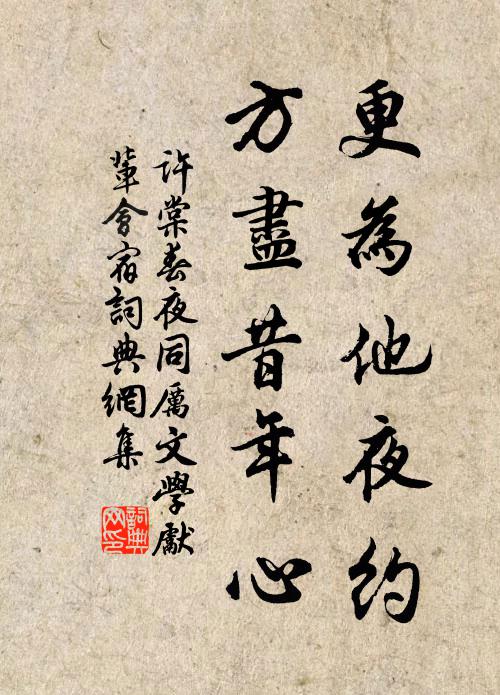 更為他夜約
方盡昔年心
許棠春夜同厲文學獻
輩會宿詞典網集
詞典网印